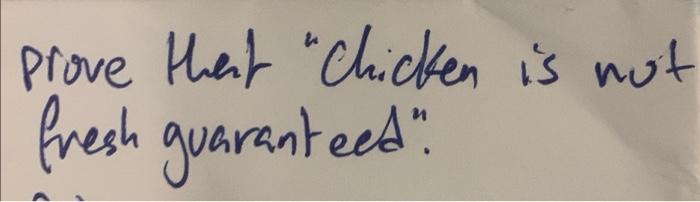 prove that "Chicken is not
fresh guaranteed".